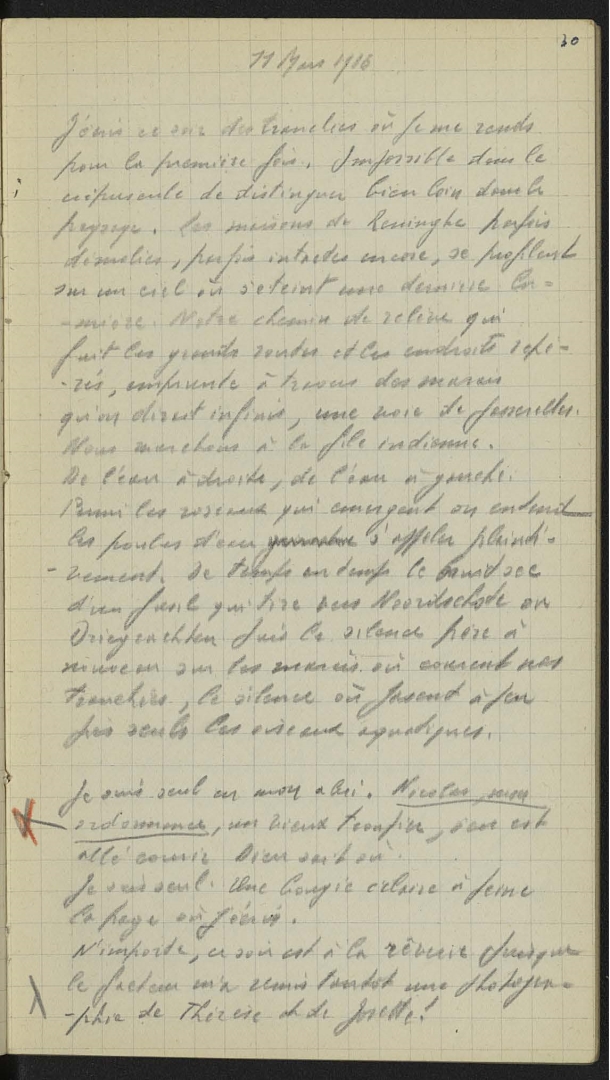 30
11 Mars 1916
J'écris ce soir des tranchées où je me rends
pour la première fois. Impossible dans le
crépuscule de distinguer bien loin dans le
paysage. Les maisons de Reninghe parfois
démolies, parfois intactes encore, se profilent
sur un ciel où s'éteint une dernière lu-
-mière. Notre chemin de relève qui
fuit les grandes routes et les endroits repé-
-rés, emprunte à travers des marais
qu'on dirait infinis, une voie de passerelles.
Nous marchons à la file indienne.
De l'eau à droite, de l'eau à gauche.
Parmi les roseaux qui émergent on entend
les poules d'eau s'appeler plainti-
-vement. De temps en temps le bruit sec
d'un fusil qui tire vers Noordschote ou
Driegrachten puis le silence pèse à
nouveau sur les marais où courent nos
tranchées, le silence où jasent à peu
près seuls les oiseaux aquatiques.
Je suis seul en mon abri. Nicolas, mon
ordonnance, un vieux troupier, s'en est
allé courir Dieu sait où.
Je suis seul. Une bougie éclaire à peine
la page où j'écris.
N'importe, ce soir est à la rêverie puisque
le facteur m'a remis tantôt une photogra-
-phie de Thérèse et de Josette!